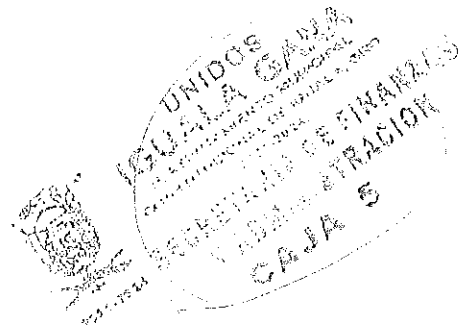 UNIDOS
IGUALA GANA
H. AYUNTAMIENTO MUNICIPAL
CONSTITUCIONAL DE IGUALA, GRO
SECRETARIA DE FINANZAS
Y ADMINISTRACION
CAJA 5